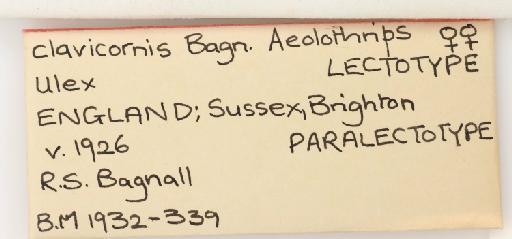 clavicornis Bagn. Aeolothrips ♀♀
Ulex LECTOTYPE
ENGLAND; Sussex, Brighton
v. 1926 PARALECTOTYPE
R.S. Bagnall
B.M 1932-339